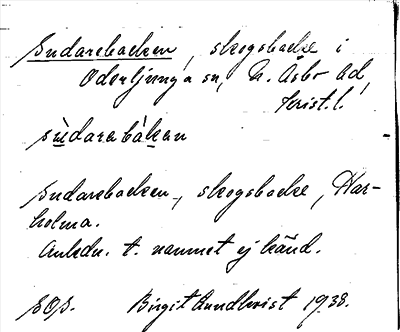 Sudarebacken, skogsbacke i
Oderljunga sn, N. Åsbo hd,
Krist. l.
sùdarebàkan
Sudarebacken, skogsbacke, Har-
holma.
Anledn. t. namnet ej känd.
Birgit Lundkvist 1938.